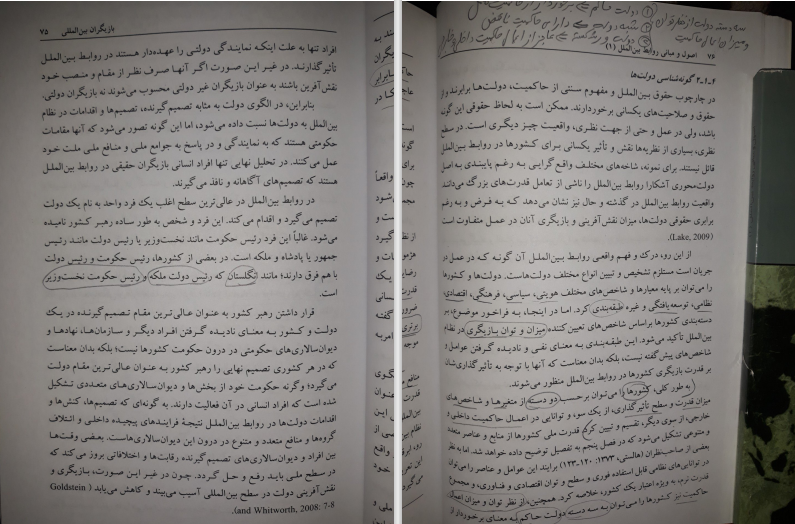 بازیگران بین‌المللی ۷۵
افراد تنها به علت اینکه نمایندگی دولتی را عهده‌دار هستند در روابط بین‌الملل
تأثیرگذارند. در غیر این صورت اگر آنها صرف نظر از مقام و منصب خود
نقش‌آفرین باشند به عنوان بازیگران غیر دولتی محسوب می‌شوند نه بازیگران دولتی.
بنابراین، در الگوی دولت به مثابه تصمیم‌گیرنده، تصمیم‌ها و اقدامات در نظام
بین‌الملل به دولت‌ها نسبت داده می‌شود، اما این گونه تصور می‌شود که آنها مقامات
حکومتی هستند که به نمایندگی و در پاسخ به جوامع ملی و منافع ملی ملت خود
عمل می‌کنند. در تحلیل نهایی تنها افراد انسانی بازیگران حقیقی در روابط بین‌الملل
هستند که تصمیم‌های آگاهانه و نافذ می‌گیرند.
در روابط بین‌الملل در عالی‌ترین سطح اغلب یک فرد واحد به نام یک دولت
تصمیم می‌گیرد و اقدام می‌کند. این فرد و شخص به طور ساده رهبر کشور نامیده
می‌شود. غالباً این فرد رئیس حکومت مانند نخست‌وزیر یا رئیس دولت مانند رئیس
جمهور یا پادشاه و ملکه است. در بعضی از کشورها، رئیس حکومت و رئیس دولت
با هم فرق دارند؛ مانند انگلستان که رئیس دولت ملکه و رئیس حکومت نخست‌وزیر
است.
قرار داشتن رهبر کشور به عنوان عالی‌ترین مقام تصمیم گیرنده در یک
دولت و کشور به معنای نادیده گرفتن افراد دیگر و سازمان‌ها، نهادها و
دیوان‌سالاری‌های حکومتی در درون حکومت کشورها نیست؛ بلکه بدان معناست
که در هر کشوری تصمیم نهایی را رهبر کشور به عنوان عالی‌ترین مقام دولت
می‌گیرد؛ وگرنه حکومت خود از بخش‌ها و دیوان‌سالاری‌های متعددی تشکیل
شده است که افراد انسانی در آن فعالیت دارند. به گونه‌ای که تصمیم‌ها، کنش‌ها و
اقدامات دولت‌ها در روابط بین‌الملل نتیجهٔ فرایندهای پیچیده داخلی و ائتلاف
گروه‌ها و منافع متعدد و متنوع در درون این دیوان‌سالاری‌هاست. بعضی وقت‌ها
بین افراد و دیوان‌سالاری‌های تصمیم گیرنده رقابت‌ها و اختلافاتی بروز می‌کند که
در سطح ملی باید رفع و حل گردد. چون در غیر این صورت، بازیگری و
نقش‌آفرینی دولت در سطح بین‌المللی آسیب می‌بیند و کاهش می‌یابد (Goldstein
and Whitworth, 2008: 7-8).
سه دسته دولت از نظر توان
و میزان اعمال حاکمیت
۱ دولت حاکم
۲ شبه دولت دارای حاکمیت ناقص
۳ دولت ورشکسته عاجز از اعمال حاکمیت داخلی و خارجی
۷۶ اصول و مبانی روابط بین‌الملل (۱)
۲-۱-۴ گونه‌شناسی دولت‌ها
در چارچوب حقوق بین‌الملل و مفهوم سنتی از حاکمیت، دولت‌ها برابرند و از
حقوق و صلاحیت‌های یکسانی برخوردارند. ممکن است به لحاظ حقوقی این گونه
باشد، ولی در عمل و حتی از جهت نظری، واقعیت چیز دیگری است. در سطح
نظری، بسیاری از نظریه‌ها نقش و تأثیر یکسانی برای کشورها در روابط بین‌الملل
قائل نیستند. برای نمونه، شاخه‌های مختلف واقع‌گرایی به رغم پایبندی به اصل
دولت‌محوری آشکارا روابط بین‌الملل را ناشی از تعامل قدرت‌های بزرگ می‌دانند
واقعیت روابط بین‌الملل در گذشته و حال نیز نشان می‌دهد که به فرض و به رغم
برابری حقوقی دولت‌ها، میزان نقش‌آفرینی و بازیگری آنان در عمل متفاوت است
(Lake, 2009).
از این رو، درک و فهم واقعی روابط بین‌الملل آن گونه که در عمل در
جریان است مستلزم تشخیص و تبیین انواع مختلف دولت‌هاست. دولت‌ها و کشورها
را می‌توان بر پایه معیارها و شاخص‌های مختلف هویتی، سیاسی، فرهنگی، اقتصادی،
نظامی، توسعه‌یافتگی و غیره طبقه‌بندی کرد. اما در اینجا، به فراخور موضوع، بر
دسته‌بندی کشورها براساس شاخص‌های تعیین کننده میزان و توان بازیگری در نظام
بین‌الملل تأکید می‌شود. این طبقه‌بندی به معنای نفی و نادیده گرفتن عوامل و
شاخص‌های پیش گفته نیست، بلکه بدان معناست که آنها با توجه به تأثیرگذاری‌شان
بر قدرت بازیگری کشورها در روابط بین‌الملل منظور می‌شوند.
به طور کلی، کشورها را می‌توان برحسب دو دسته از متغیرها و شاخص‌های
میزان قدرت و سطح تأثیرگذاری، از یک سو، و توانایی در اعمال حاکمیت داخلی و
خارجی، از سوی دیگر، تقسیم و تبیین کرد. قدرت ملی کشورها از منابع و عناصر متعدد
و متنوعی تشکیل می‌شود که در فصل پنجم به تفصیل توضیح داده خواهد شد. اما به نظر
بعضی از صاحب‌نظران (هالستی، ۱۳۷۳: ۱۲۰-۱۲۳) برایند این عوامل و عناصر را می‌توان
در توانایی‌های نظامی قابل استفاده فوری و سطح و توان اقتصادی و فناوری، و مجموع
قدرت نرم، به ویژه اعتبار یک کشور، خلاصه کرد. همچنین، از نظر توان و میزان اعمال
حاکمیت نیز کشورها را می‌توان به سه دسته دولت حاکم به معنای برخوردار از